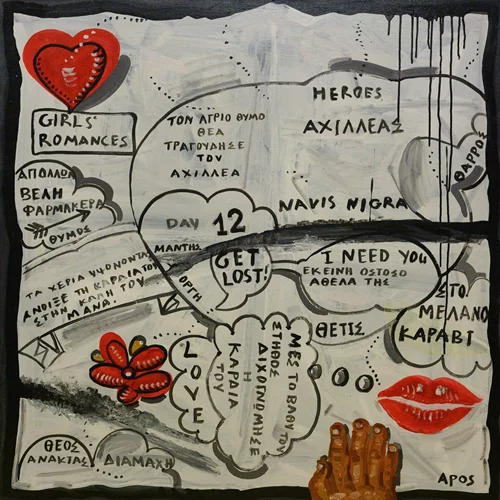 GIRLS'
ROMANCES
ΤΟΝ ΑΓΡΙΟ ΘΥΜΟ
ΘΕΑ
ΤΡΑΓΟΥΔΗΣΕ
ΤΟΥ
ΑΧΙΛΛΕΑ
HEROES
ΑΧΙΛΛΕΑΣ
ΘΑΡΡΟΣ
ΑΠΟΛΛΩΝ
ΒΕΛΗ
ΦΑΡΜΑΚΕΡΑ
ΘΥΜΟΣ
NAVIS NIGRA
DAY 12
ΜΑΝΤΗΣ
GET
LOST!
ΟΡΓΗ
I NEED YOU
ΕΚΕΙΝΗ ΩΣΤΟΣΟ
ΑΘΕΛΑ ΤΗΣ
ΤΑ ΧΕΡΙΑ ΥΨΩΝΟΝΤΑΣ
ΑΝΟΙΞΕ ΤΗ ΚΑΡΔΙΑ ΤΟΥ
ΣΤΗΝ ΚΑΛΗ ΤΟΥ
ΜΑΝΑ!
ΣΤΟ
ΜΕΛΑΝΟ
ΚΑΡΑΒΙ
ΘΕΤΙΣ
LOVE
ΜΕΣ ΤΟ ΒΑΘΥ ΤΟΥ
ΣΤΗΘΟΣ
ΔΙΧΟΓΝΩΜΗΣΕ
Η
ΚΑΡΔΙΑ
ΤΟΥ
ΘΕΟΣ
ΑΝΑΚΤΑΣ
ΔΙΑΜΑΧΗ
APOS